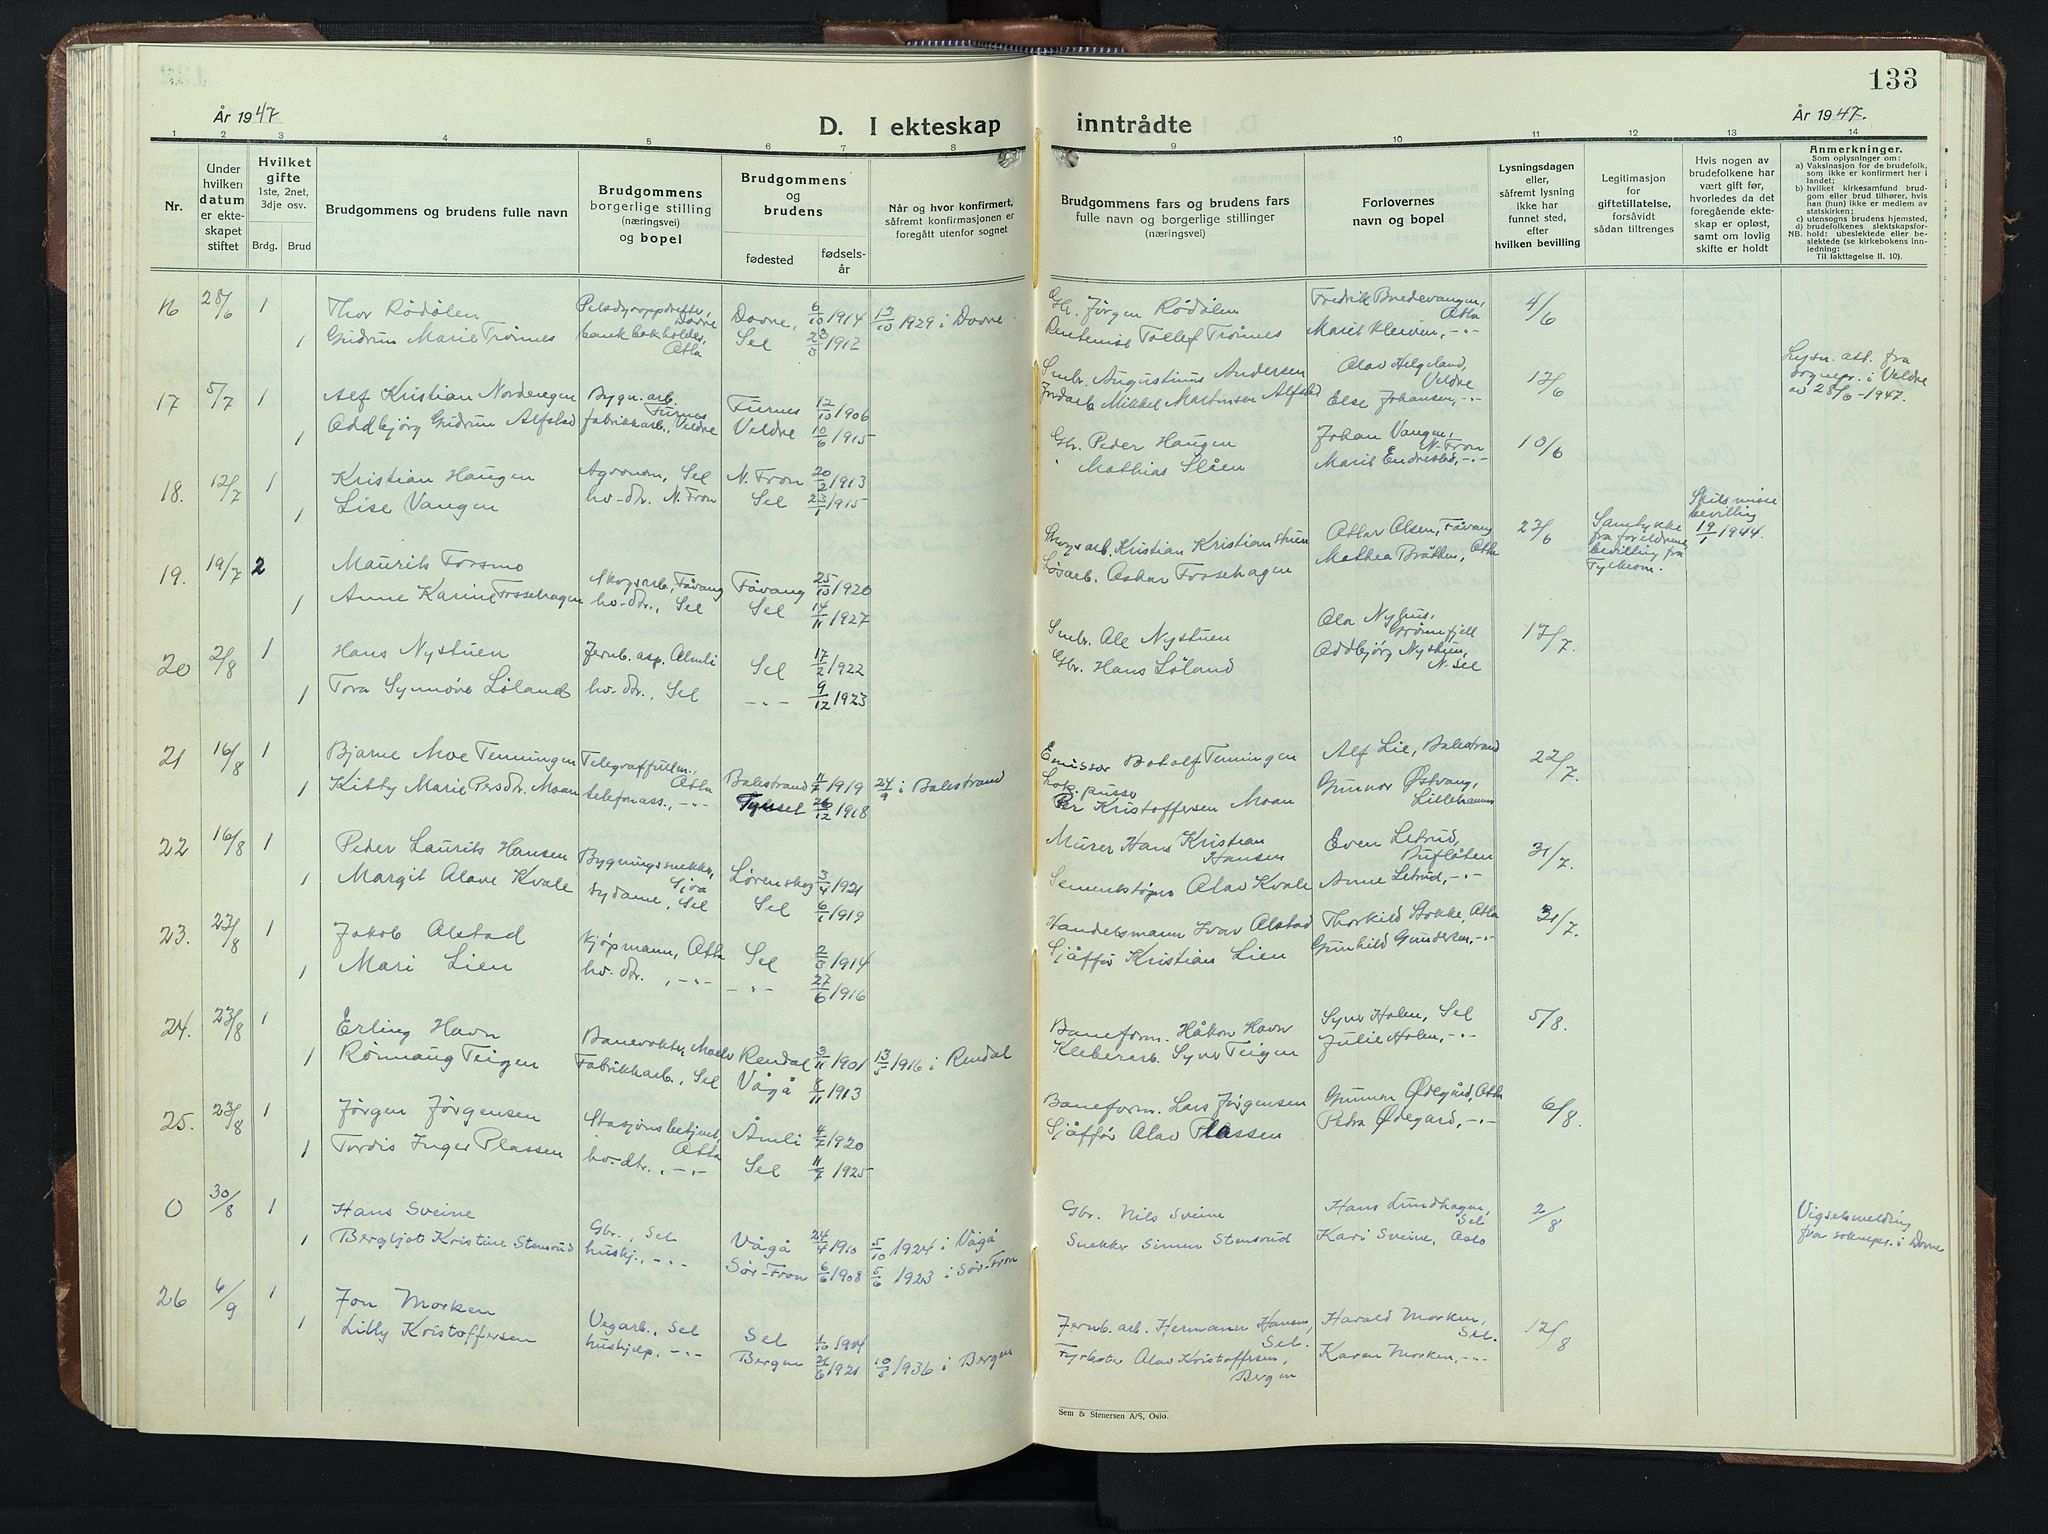 133
År 1947
D. I ekteskap inntrådte
År 1947.
1 2 3 4 5 6 7 8 9 10 11 12 13 14
Nr.
Under hvilken datum er ekteskapet stiftet
Hvilket gifte
1ste, 2net, 3dje osv.
Brdg. Brud
Brudgommens og brudens fulle navn
Brudgommens borgerlige stilling (næringsvei) og bopel
Brudgommens og brudens
fødested
fødselsår
Når og hvor konfirmert, såfremt konfirmasjonen er foregått utenfor sognet
Brudgommens fars og brudens fars fulle navn og borgerlige stillinger (næringsvei)
Forlovernes navn og bopel
Lysningsdagen eller, såfremt lysning ikke har funnet sted, efter hvilken bevilling
Legitimasjon for giftetillatelse, forsåvidt sådan tiltrenges
Hvis nogen av brudefolkene har vært gift før, hvorledes da det foregående ekteskap er opløst, samt om lovlig skifte er holdt
Anmerkninger.
Som oplysninger om:
a) Vaksinasjon for de brudefolk, som ikke er konfirmert her i landet;
b) hvilket kirkesamfund brudgom eller brud tilhører, hvis han (hun) ikke er medlem av statskirken;
c) utensogns brudens hjemsted,
d) brudefolkenes slektskapsforhold: ubeslektede eller beslektede (se kirkebokens Innledning:
NB.
Til iakttagelse II. 10).
16 28/6 1 Thor Rödölen Pelsdyroppdretter, Dovre Dovre, 6/10 1914 13/10 1929 i Dovre Gbr. Jörgen Rödölen Fredrik Bredevangen, Otta 4/6
1 Gudrun Marie Tromes bankbokholder, Otta Sel 1912 Rentenist Tollef Tromes Marit Kleiven, -"-
17 5/7 1 Alf Kristian Nordengen Bygn. arb. Furnes Furnes 12/10 1906 Smbr. Augustinus Andersen Olav Helgeland, Veldre 17/6 Lysn. att. fra sognepr. i Veldre av 28/6-1947.
1 Oddbjörg Gudrun Alfstad fabrikkarb., Veldre Veldre 10/6 1915 Jordarb. Mikkel Martinsen Alfstad Else Johansen, -"-
18. 12/7 1 Kristian Haugen Agronom, Sel N. Fron 20/2 1913 Gbr. Peder Haugen Johan Vangen, N. Fron 10/6
1 Lise Vangen hv-dtr. N. Fron Sel 23/1 1915 " Mathias Slåen Marit Endrestad, -"-
19. 19/7 2 Maurits Forsmo Skogsarb., Fåvang Fåvang 25/10 1920 Skogsarb. Kristian Kristianstuen Ottar Olsen, Fåvang 27/6 Samtykke fra foreldrene bevilling fra Fylkesm. Skilsmisse bevilling 19/1 1944.
1 Anne Karine Fossehagen hv-dtr., Sel Sel 14/11 1927 Løsarb. Oskar Fossehagen Mathea Bråten, Otta
20 2/8 1 Hans Nystuen Jernb. asp. Åmli Sel 17/2 1922 Smbr. Ole Nystuen Ola Nyhus, 17/7.
1 Tora Synnöve Löland hv. dtr., Sel -"- 9/12 1923 Gbr. Hans Löland Oddbjörg Nystuen, N. Sel
21 16/8 1 Bjarne Moe Tenningen Telegraffullm., Otta Balestrand 11/7 1919 24/9 i Balestrand Emissær Botolf Tenningen Alf Lie, Balestrand 22/7.
1 Kitty Marie Persdtr. Moan telefonass., -"- Tynset 26/12 1918 Lok. pusser Per Kristoffersen Moan Gunnor Östvang, Lillehammer
22 16/8 1 Peder Laurits Hansen Bygningssnekker, Sjoa Lørenskog 3/4 1921 Murer Hans Kristian Hansen Even Letrud, 31/7.
1 Margit Olave Kvale sydame, Sel Sel 6/1 1919 Sementstøper Olav Kvale Anne Letrud, -"-
23. 23/8 1 Jakob Olstad kjøpmann, Otta Sel 1914 Handelsmann Ivar Olstad Thorkild Stokke, Otta 31/7.
1 Mari Lien hv. dtr., -"- -"- 27/6 1916 Sjåffør Kristian Lien Gunhild Gundersen, -"-
24. 23/8 1 Erling Havn Banevokter, Moelv Rendal 3/11 1901 13/5 1916 i Rendal Baneform. Håkon Havn Syver Holen, Sel 5/8.
1 Rönnaug Teigen Fabrikkarb., Sel Vågå 8/11 1913 Kleberarb. Syver Teigen Julie Holen, -"-
25. 23/8 1 Jörgen Jörgensen Stasjonsbetjent, Otta Åmli 4/7 1920 Baneform. Lars Jörgensen Gunnar Ödegård, Otta 6/8.
1 Tordis Inger Plassen hv-dtr., -"- Sel 11/7 1925 Sjåffør Olav Plassen Petra Ödegard, -"-
0 30/8 1 Hans Sveine Gbr., Sel Vågå 24/4 1910 5/10 1924 i Vågå Gbr. Nils Sveine Hans Lundhagen, Sel 2/8 Vigselsmelding fra soknepr. i Dovre
1 Bergljot Kristine Stensrud hushj., -"- Sör-Fron 6/6 1908 5/6 1923 i Sör-Fron Snekker Simen Stensrud Kari Sveine, Oslo
26 6/9 1 Jon Morken Vegarb., Sel Sel Jernb. arb. Hermann Hansen, Sel. Harald Morken, Sel. 12/8
1 Lilly Kristoffersen hushjelp, -"- Bergen 21/6 1921 1936 i Bergen Fyrbøter Olav Kristoffersen, Bergen Karen Morken, -"-
Sem & Stenersen A/S, Oslo.